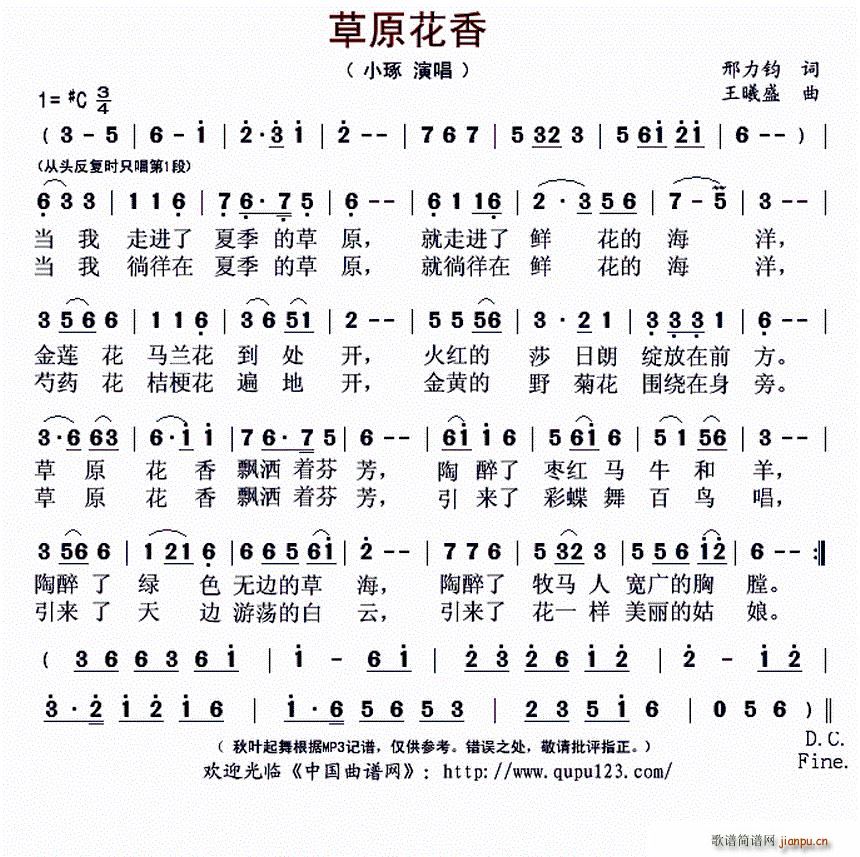 草原花香
（ 小琢 演唱 ）
邢力钧 词
1= #C 3/4
王曦盛 曲
( 3 - 5 | 6 - i | 2· 3 i | 2 - - | 7 6 7 | 5 32 3 | 5 61 21 | 6 - - ) |
(从头反复时只唱第1段)
6 3 3 | 1 1 6 | 7 6· 7 5 | 6 - - | 6 1 16 | 2 · 3 5 6 | 7 - 5 | 3 - - |
当 我 走进了 夏季 的草 原， 就走进了 鲜 花的 海 洋，
当 我 徜徉在 夏季 的草 原， 就徜徉在 鲜 花的 海 洋，
3 56 6 | 1 1 6 | 3 6 51 | 2 - - | 5 5 56 | 3 · 2 1 | 3 3 3 1 | 6 - - |
金莲 花 马兰花 到 处 开， 火红的 莎 日朗 绽放在前 方。
芍药 花 桔梗花 遍 地 开， 金黄的 野 菊花 围绕在身 旁。
3·6 63 | 6·i i | 76· 7 5 | 6 - - | 6i i 6 | 5 6i 6 | 5 1 56 | 3 - - |
草 原 花 香 飘洒 着芬 芳， 陶 醉了 枣红 马 牛 和 羊，
草 原 花 香 飘洒 着芬 芳， 引 来了 彩蝶 舞 百 鸟 唱，
3 56 6 | 1 21 6 | 6 6 5 6i | 2 - - | 7 7 6 | 5 32 3 | 5 5 6 i2 | 6 - - :‖
陶醉 了 绿 色 无边的草 海， 陶醉了 牧马 人 宽广的胸 膛。
引来 了 天 边 游荡的白 云， 引来了 花一 样 美丽的姑 娘。
( 3 6 6 3 6 i | i - 6 i | 2 3 2 6 i 2 | 2 - i 2 |
3·2 i 2 i 6 | i·6 5 6 5 3 | 2 3 5 i 6 | 0 5 6 ) ‖
D.C.
（ 秋叶起舞根据MP3记谱，仅供参考。错误之处，敬请批评指正。）
Fine.
欢迎光临《中国曲谱网》：http://www.qupu123.com/
歌谱简谱网 jianpu.cn